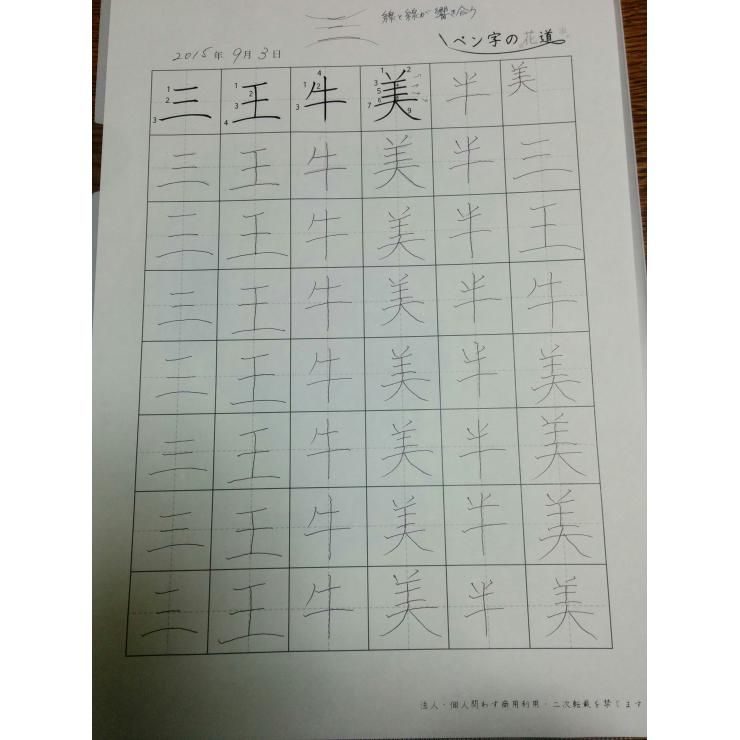 三 線と線が響き合う
ペン字の花道
2015年9月3日
三 王 牛 美 半 美
三 王 牛 美 半 三
三 王 牛 美 半 王
三 王 牛 美 半 牛
三 王 牛 美 半 美
三 王 牛 美 半 美
三 王 牛 美 半 美
三 王 牛 美 半 美
法人・個人問わず商用利用・二次転載を禁じます